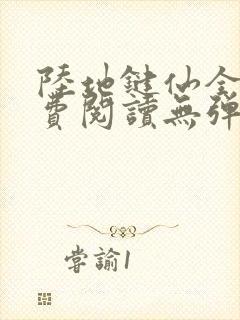 陸地鍵仙全
費閱讀無彈
嘗諭1